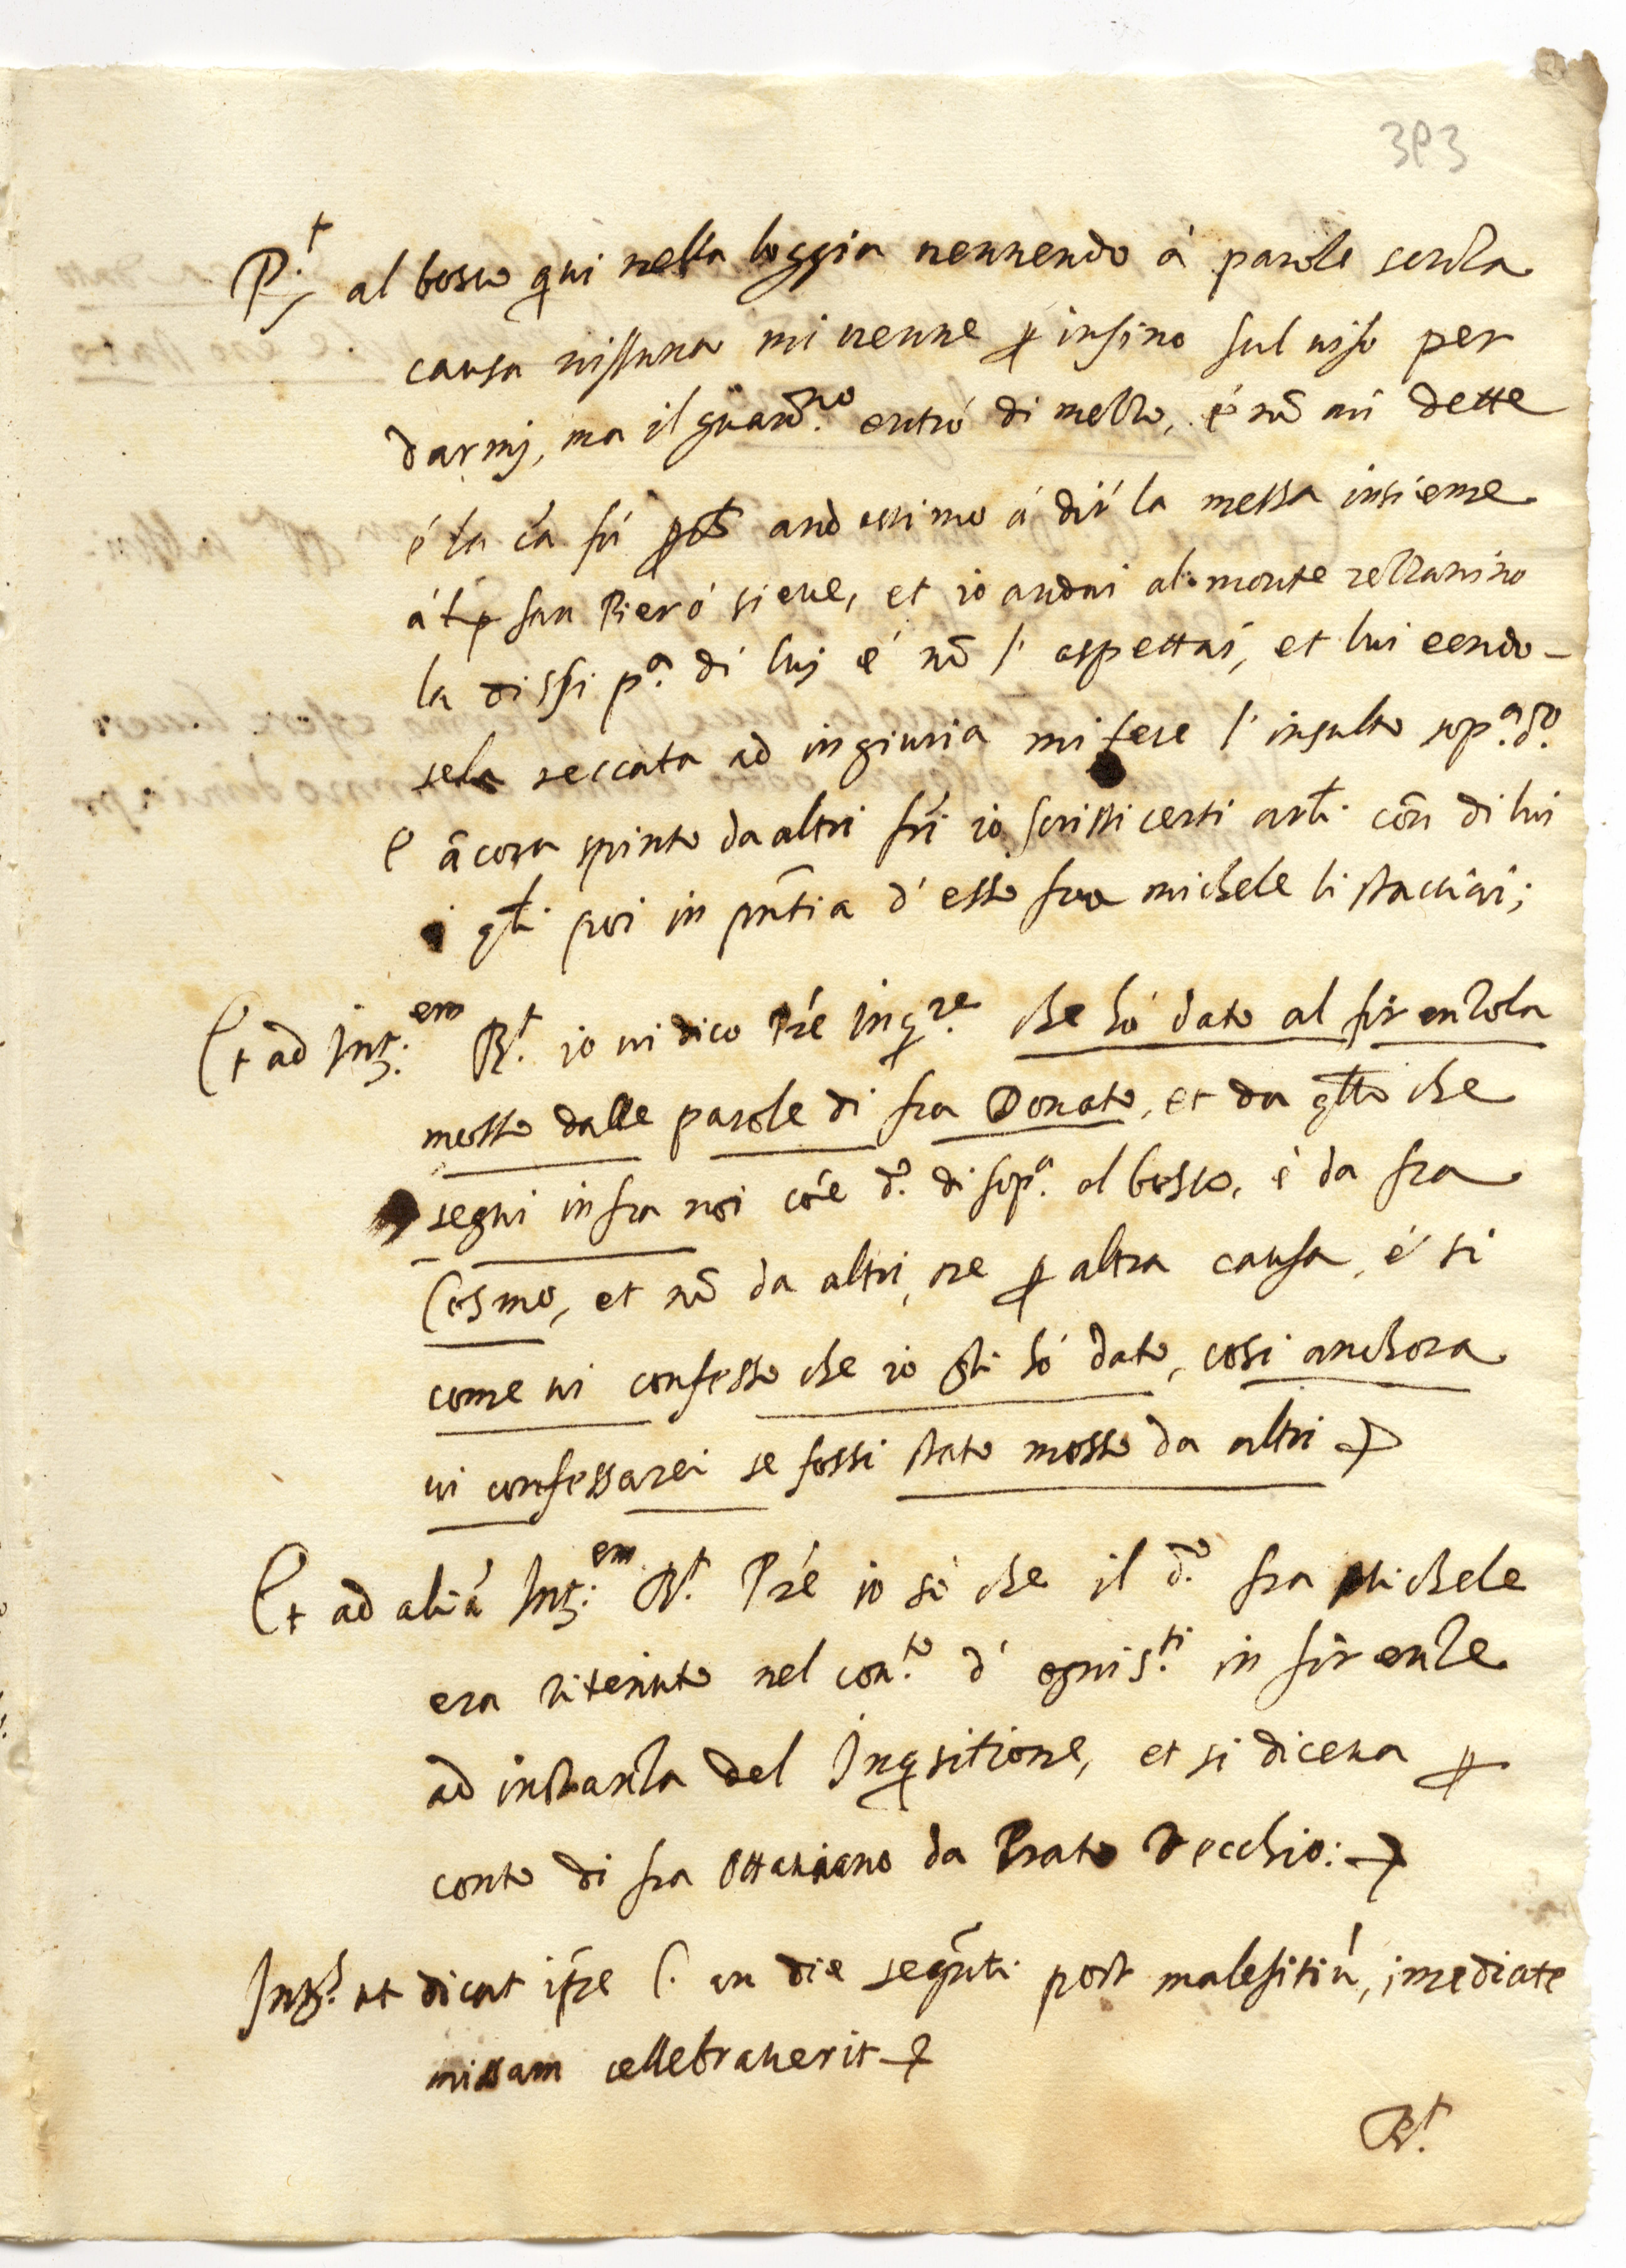 393
R.t al bosco qui nella loggia vennendo à parole senza
causa nissuna mi venne p insino sul viso per
darmi, ma il guard.no entrò di mezzo, é nō mi dette
é la cā fù andassimo à dir la messa insieme
á san Piero sieve, et io andai al monte rezzanino
la dissi p.a di lui é nō l'aspettai, et lui
sela reccata ad ingiuria mi fece l'insulto sop.a d.o
é ācora spinto da altri frī io scrissi certi artī cōn di lui
i qlī poi in pñtia d'esso fra michele li stacciai;
Et ad Intz.em R.t io vi dico Pre Inq.re che hò dato al firenzola
mosso dalle parole di fra Donato, et da qllo che
segui infra noi cōe d.o di sop.a al bosco, é da fra
Cosmo, et nō da altri, ne p altra causa, é si
come vi confesso che io gli hó dato, cosi anchora
vi confessarei se fossi stato mosso da altri
Et ad aliā Intz.em R.t Pre io sò che il d.o fra Michele
era ritenuto nel con.to d'ognis.ti in firenze
ad instanza del Inqsitione, et si diceva p
conto di fra Ottaviano da Prato Vecchio:
Intz.s ut dicat ipse C. an die seqñti post malefitiū, imediate
missam cellebraverit
R.t